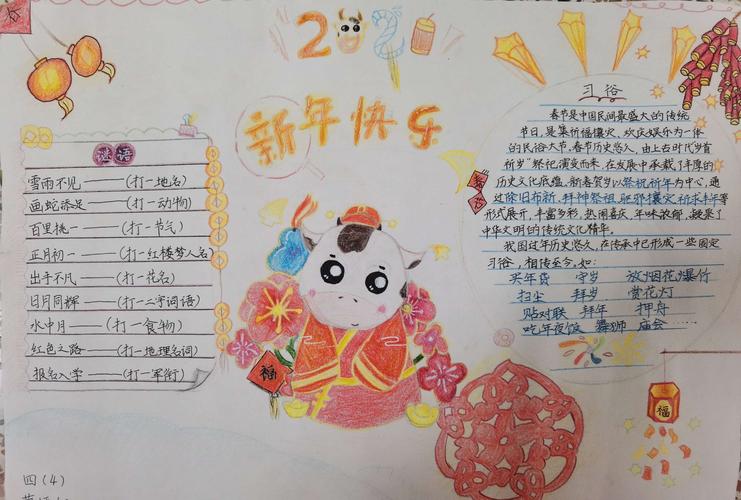 2021
新年快乐
谜语
雪雨不见——(打一地名)
画蛇添足——(打一动物)
百里挑一——(打一节气)
正月初一——(打一红楼梦人名)
出手不凡——(打一花名)
日月同辉——(打一二字词语)
水中月——(打一食物)
红色之路——(打一地理名词)
报名入学——(打一军衔)
四(4)
福
习俗
春节是中国民间最盛大的传统
节日,是集祈福攘灾、欢庆娱乐为一体
的民俗大节。春节历史悠久,由上古时代岁首
祈岁"祭祀演变而来,在发展中承载了丰厚的
历史文化底蕴。新春贺岁以祭祝祈年为中心,通
过除旧布新、拜神祭祖、驱邪攘灾、祈求丰年等
形式展开,丰富多彩,热闹喜庆,年味浓郁,凝聚了
中华文明的传统文化精华。
我国过年历史悠久,在传承中已形成一些固定
习俗,相传至今,如:
买年货 守岁 放烟花爆竹
扫尘 拜岁 赏花灯
贴对联 拜年 押舟
吃年夜饭 舞狮 庙会
福